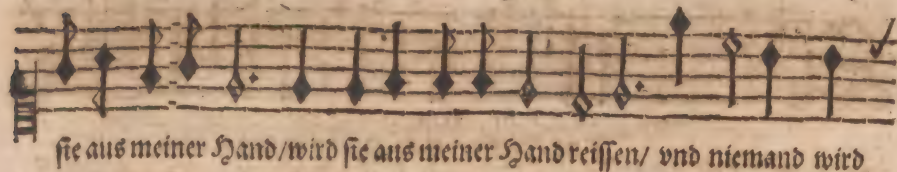 ſie aus meiner Hand/wird ſie aus meiner Hand reiſſen/ vnd niemand wird